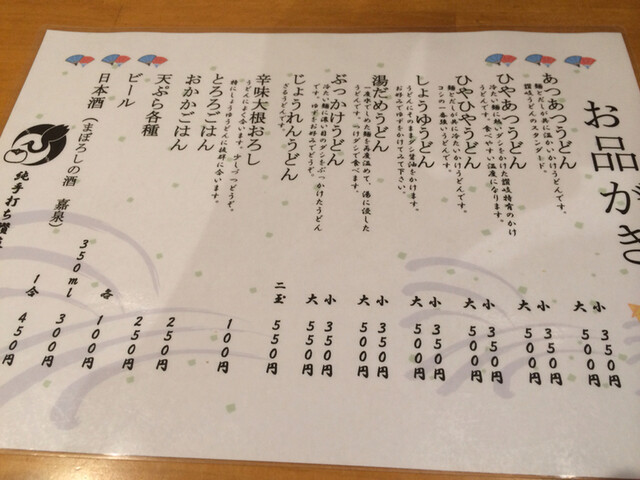 お品がき
あつあつうどん
麺もだしが共に温かいかけうどんです。
讃岐うどんのスタンダード。
小 350円
大 500円
ひやあつうどん
冷たい麺に熱いダシをかけた讃岐特有のかけ
うどんです。食べやすい温度になります。
小 350円
大 500円
ひやひやうどん
麺もだしが共に冷たいかけうどんです。
コシの一番強いうどんです。
小 350円
大 500円
しょうゆうどん
うどんにそのままダシ醤油をかけます。
お好みでゆずをかけてみて下さい。
小 350円
大 500円
湯だめうどん
一度水でしめた麺を再度温めて、湯に浸した
うどんです。つけダシで食べます。
小 350円
大 500円
ぶっかけうどん
冷たい麺に濃い目のダシをぶっかけたうどん
です。ゆずをお好みでどうぞ。
小 350円
大 550円
じょうれんうどん
ざるうどんです。
二玉 550円
辛味大根おろし
うどんによく合います。少しづつどうぞ。
特にしょうゆうどんに抜群に合います。
100円
とろろごはん
250円
おかかごはん
250円
天ぷら各種
各 100円
ビール
350ml 300円
日本酒(まぼろしの酒 嘉泉)
1合 450円
純手打ち讃岐